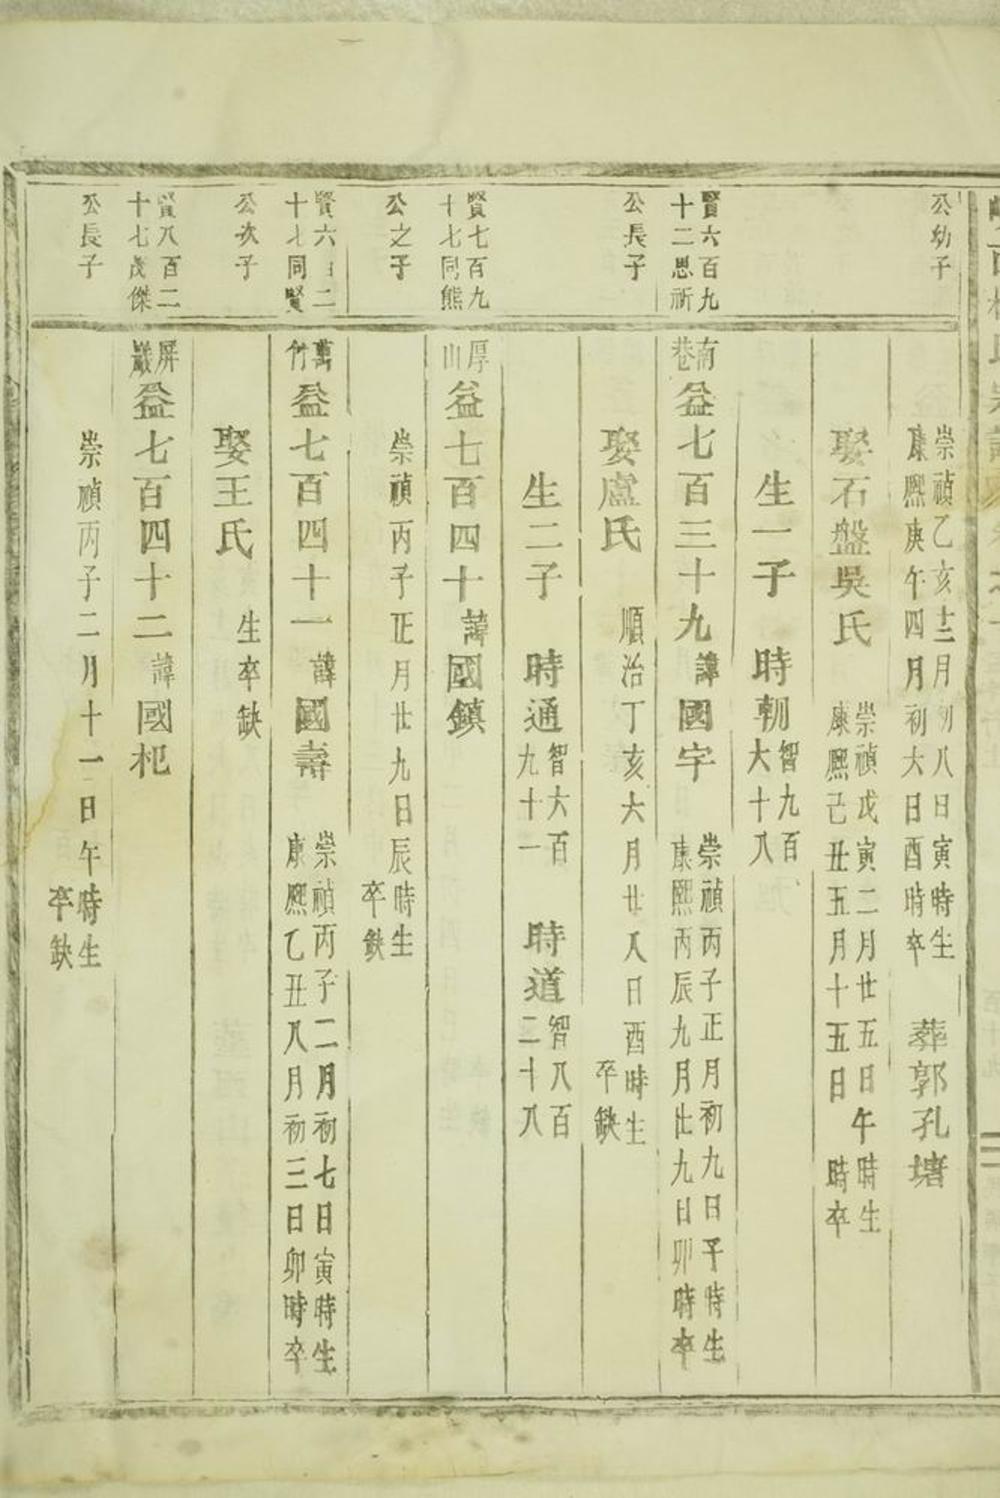 公幼子
崇禎乙亥十二月初八日寅時生
康熙庚午四月初六日酉時卒
葬郭孔塘
娶石盤吳氏
崇禎戊寅二月廿五日午時生
康熙己丑五月十五日時卒
生一子 時朝
智九百
六十八
賢六百九
十二思祈
南
巷
益七百三十九
諱國宇
崇禎丙子正月初九日子時生
康熙丙辰九月廿九日卯時卒
公長子
娶盧氏
順治丁亥六月廿八日酉時生
卒缺
生二子 時通
智六百
九十一
時道
智八百
二十八
賢七百九
十七同熊
厚
山
益七百四十
諱國鎮
公之子
崇禎丙子正月廿九日辰時生
卒缺
賢六百二
十七同賢
萬
竹
益七百四十一
諱國壽
崇禎丙子二月初七日寅時生
康熙乙丑八月初三日卯時卒
公次子
娶王氏
生卒缺
賢八百二
十七茂傑
屏
巖
益七百四十二
諱國杞
公長子
崇禎丙子二月十一日午時生
卒缺